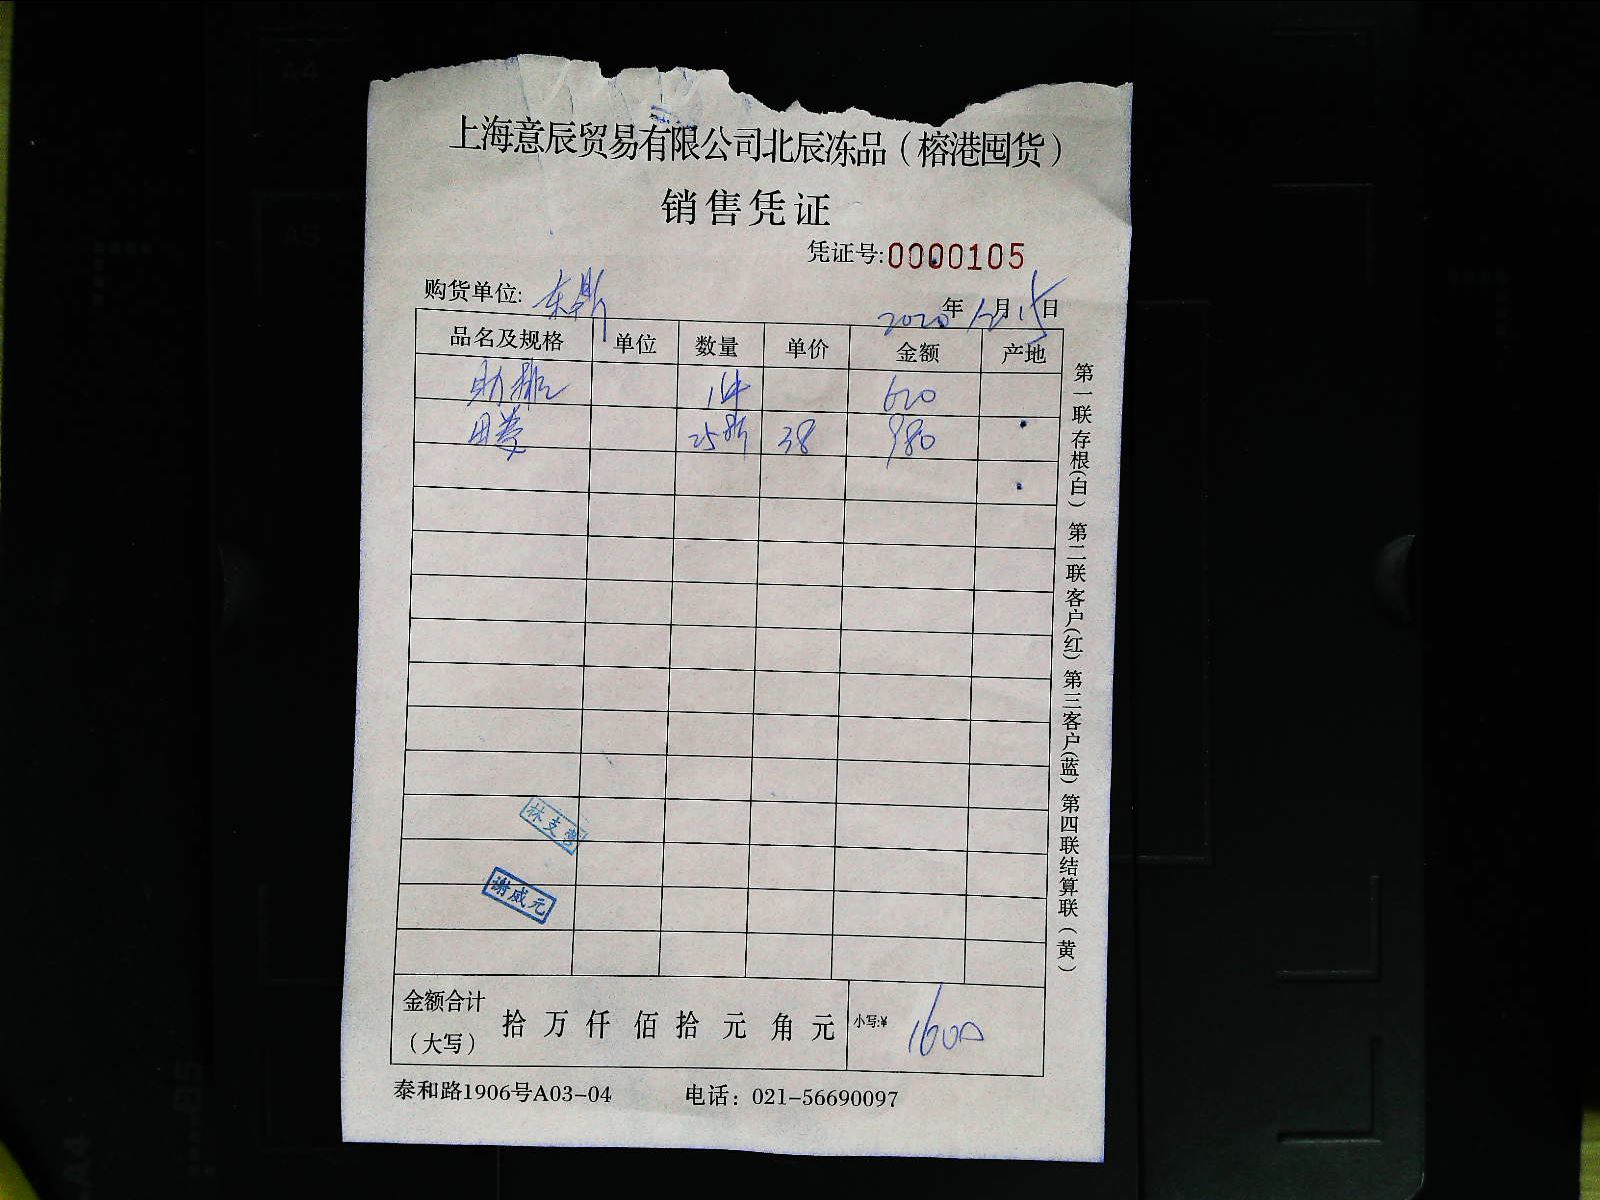 上海意辰贸易有限公司北辰冻品（榕港囤货）
销售凭证
凭证号:0000105
购货单位:
2020年12月15日
品名及规格 单位 数量 单价 金额 产地
1件 620
25斤 38 980
林支营
谢威元
金额合计（大写） 拾 万 仟 佰 拾 元 角 元 小写:¥ 1600
泰和路1906号A03-04 电话：021-56690097
第一联存根(白) 第二联客户(红) 第三客户(蓝) 第四联结算联（黄）